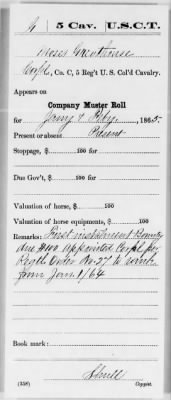 5 Cav. U.S.C.T.
Moses
Corpl, Co. C, 5 Reg't U. S. Col'd Cavalry.
Appears on
Company Muster Roll
for Jany & Feby, 1865.
Present or absent Present
Stoppage, $ 100 for
Due Gov't, $ 100 for
Valuation of horse, $ 100
Valuation of horse equipments, $ 100
Remarks: First installment Bounty
due $100 appointed Corpl per
Regtl Order No. 27
from Jany 1/64
Book mark:
(358) Copyist.